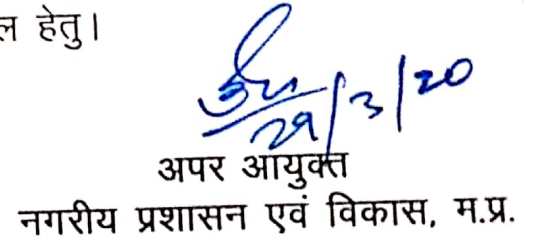 ल हेतु।
29/3/20
अपर आयुक्त
नगरीय प्रशासन एवं विकास, म.प्र.